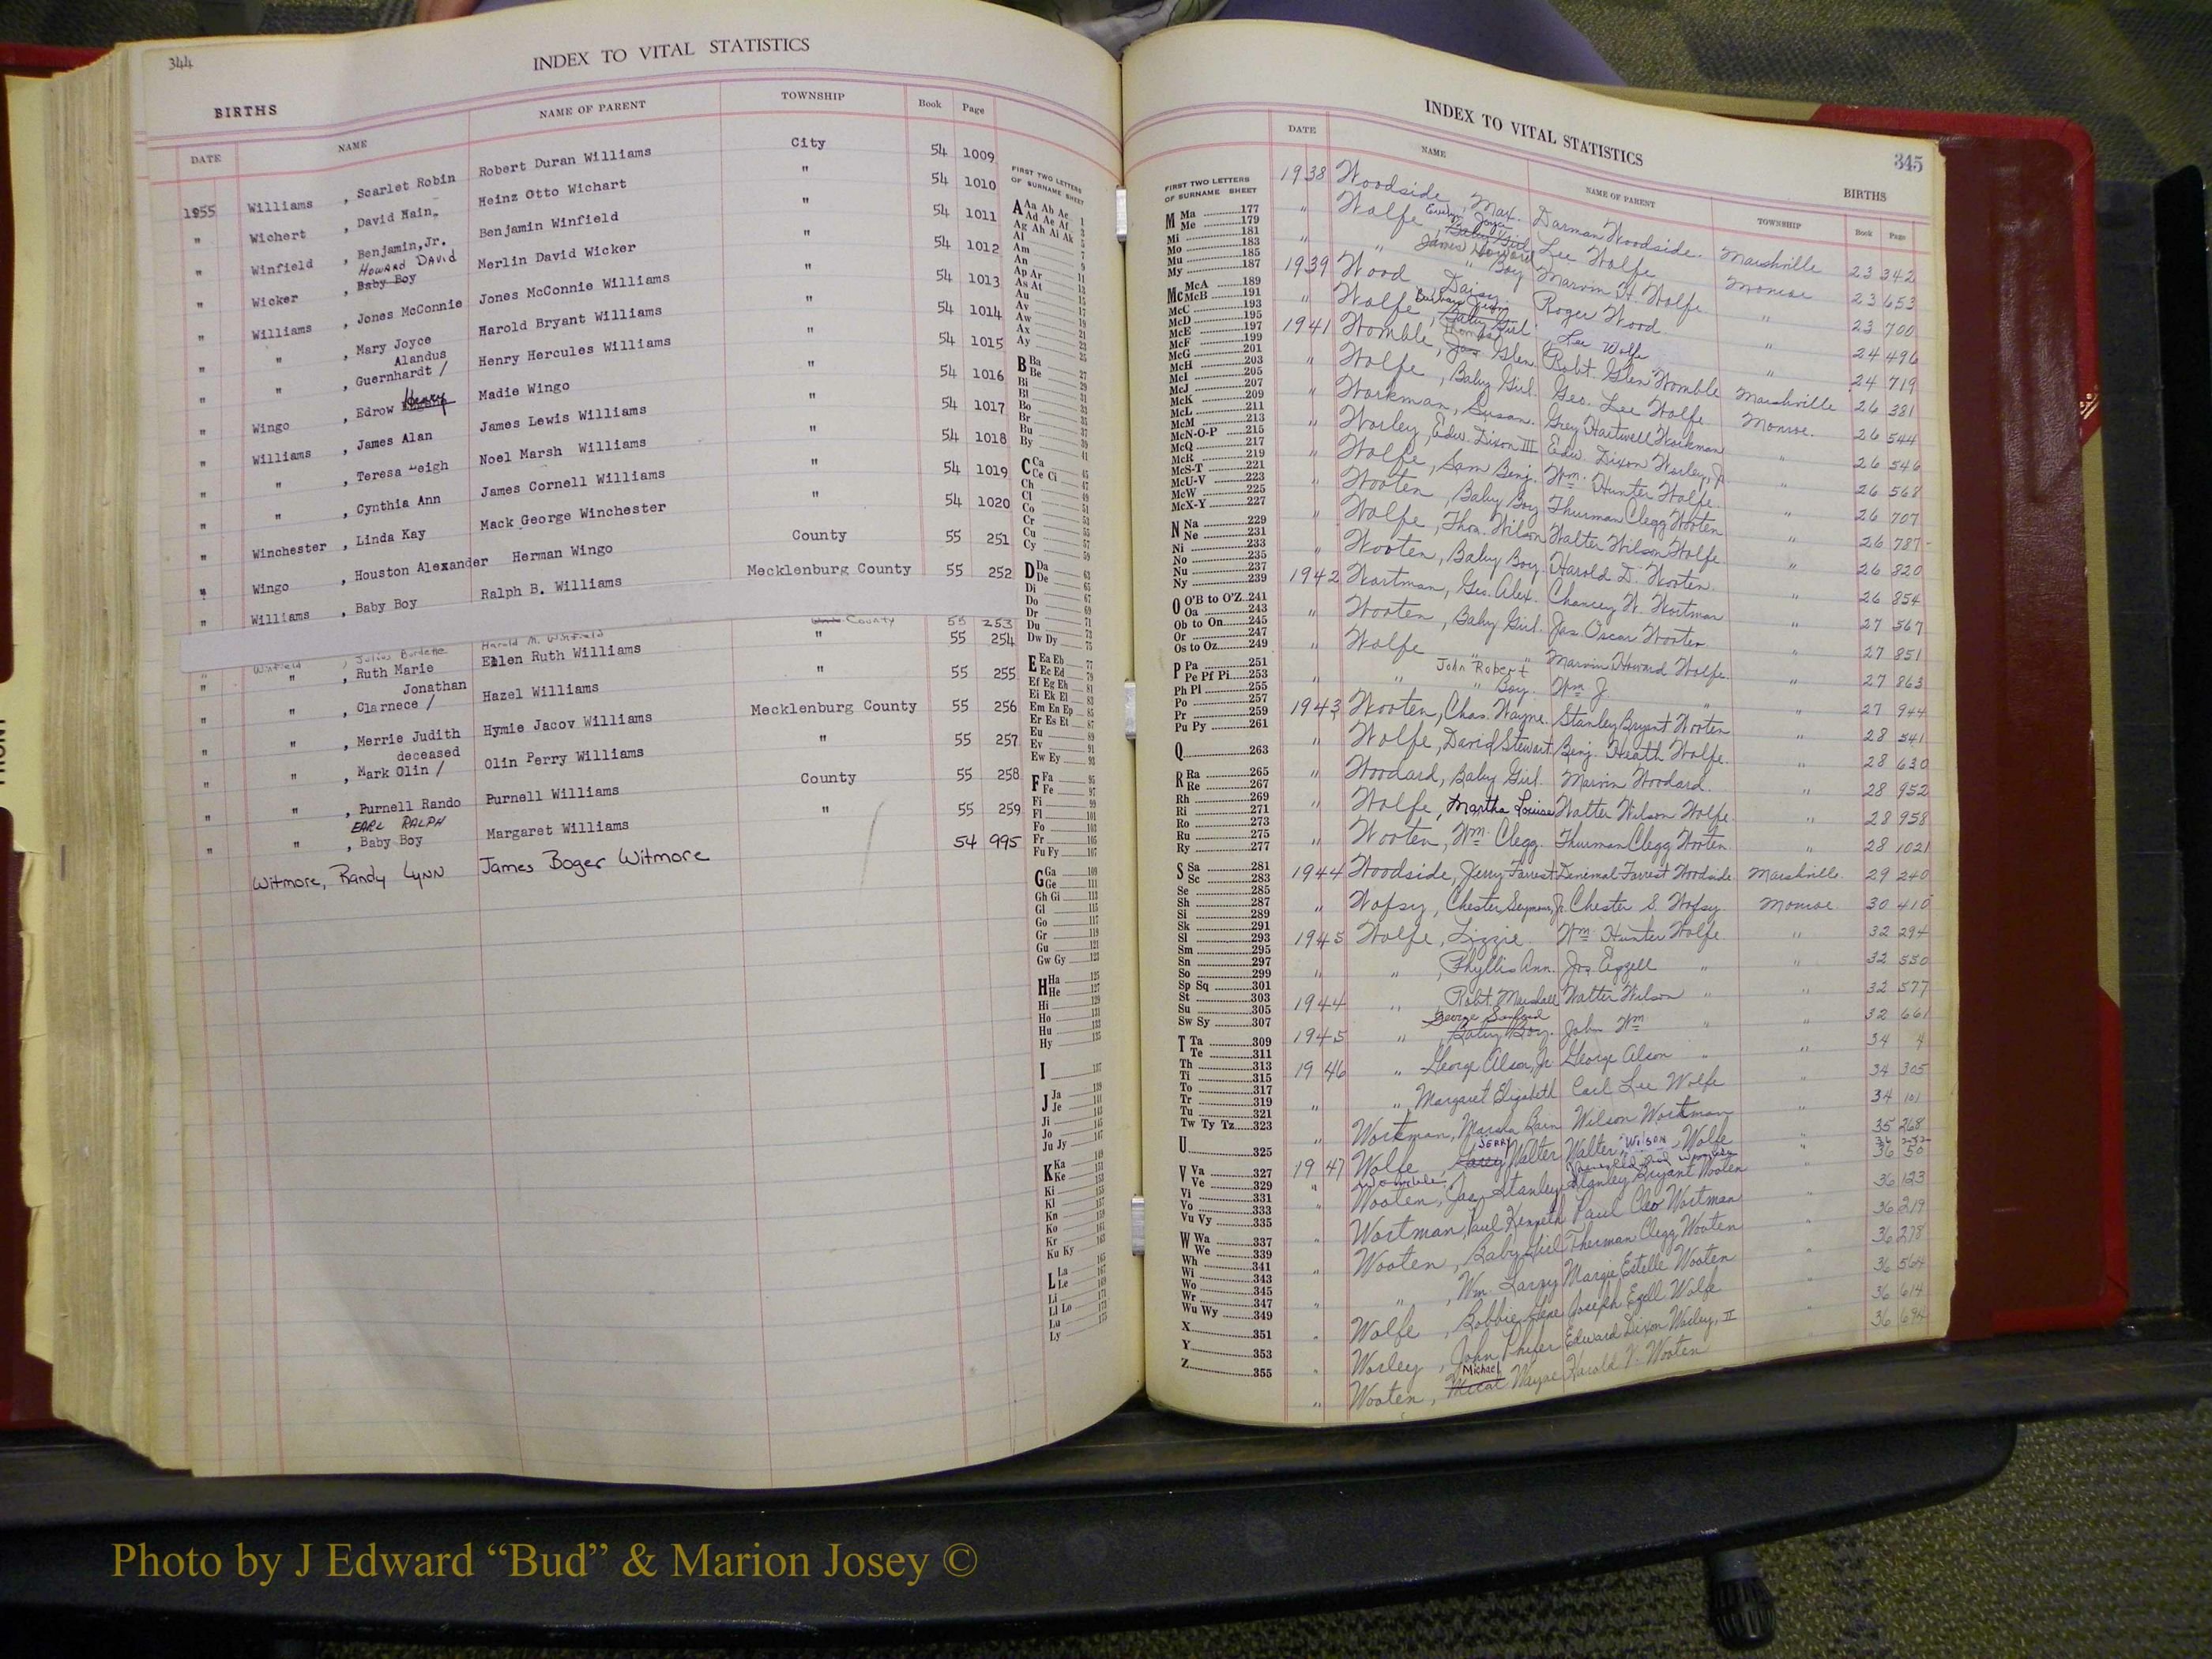 344
INDEX TO VITAL STATISTICS
BIRTHS
DATE NAME NAME OF PARENT TOWNSHIP Book Page
1955 Williams , Scarlet Robin Robert Duran Williams City 54 1009
" Wichert , David Hain. Heinz Otto Wichart " 54 1010
" Winfield , Benjamin,Jr. Benjamin Winfield " 54 1011
Howard David
" Wicker , Baby Boy Merlin David Wicker " 54 1012
" Williams , Jones McConnie Jones McConnie Williams " 54 1013
" " , Mary Joyce Harold Bryant Williams " 54 1014
Alandus
" " , Guernhardt / Henry Hercules Williams " 54 1015
Henry
" Wingo , Edrow Madie Wingo " 54 1016
" Williams , James Alan James Lewis Williams " 54 1017
" " , Teresa Leigh Noel Marsh Williams " 54 1018
" " , Cynthia Ann James Cornell Williams " 54 1019
" Winchester , Linda Kay Mack George Winchester " 54 1020
" Wingo , Houston Alexander Herman Wingo County 55 251
" Williams , Baby Boy Ralph B. Williams Mecklenburg County 55 252
" Winfield , Julius Burdette Harold M. Winfield County 55 253
" " , Ruth Marie Ellen Ruth Williams " 55 254
Jonathan
" " , Clarnece / Hazel Williams " 55 255
" " , Merrie Judith Hymie Jacov Williams Mecklenburg County 55 256
deceased
" " , Mark Olin / Olin Perry Williams " 55 257
" " , Purnell Rando Purnell Williams County 55 258
EARL RALPH
" " , Baby Boy Margaret Williams " 55 259
Witmore, Randy Lynn James Boger Witmore 54 995
FIRST TWO LETTERS
OF SURNAME SHEET
A Aa Ab Ac 1
Ad Ae Af 3
Ag Ah Ai Ak 5
Al 7
Am 9
An 11
Ap Ar 13
As At 15
Au 17
Av 19
Aw 21
Ax 23
Ay 25
B Ba 27
Be 29
Bi 31
Bl 33
Bo 35
Br 37
Bu 39
By 41
C Ca 45
Ce Ci 47
Ch 49
Cl 51
Co 53
Cr 55
Cu 57
Cy 59
D Da 63
De 65
Di 67
Do 69
Dr 71
Du 73
Dw Dy 75
E Ea Eb 77
Ec Ed 79
Ef Eg Eh 81
Ei Ek El 83
Em En Ep 85
Er Es Et 87
Eu 89
Ev 91
Ew Ey 93
F Fa 95
Fe 97
Fi 99
Fl 101
Fo 103
Fr 105
Fu Fy 107
G Ga 109
Ge 111
Gh Gi 113
Gl 115
Go 117
Gr 119
Gu 121
Gw Gy 123
H Ha 125
He 127
Hi 129
Ho 131
Hu 133
Hy 135
I 137
J Ja 139
Je 141
Ji 143
Jo 145
Ju Jy 147
K Ka 149
Ke 151
Ki 153
Kl 155
Kn 157
Ko 159
Kr 161
Ku Ky 163
L La 165
Le 167
Li 169
Ll Lo 171
Lu 173
Ly 175
INDEX TO VITAL STATISTICS
345
BIRTHS
FIRST TWO LETTERS
OF SURNAME SHEET
M Ma 177
Me 179
Mi 181
Mo 183
Mu 185
My 187
Mc McA 189
McB 191
McC 193
McD 195
McE 197
McF 199
McG 201
McH 203
McI 205
McJ 207
McK 209
McL 211
McM 213
McN-O-P 215
McQ 217
McR 219
McS-T 221
McU-V 223
McW 225
McX-Y 227
N Na 229
Ne 231
Ni 233
No 235
Nu 237
Ny 239
O O'B to O'Z 241
Oa 243
Ob to On 245
Or 247
Os to Oz 249
P Pa 251
Pe Pf Pi 253
Ph Pl 255
Po 257
Pr 259
Pu Py 261
Q 263
R Ra 265
Re 267
Rh 269
Ri 271
Ro 273
Ru 275
Ry 277
S Sa 281
Sc 283
Se 285
Sh 287
Si 289
Sk 291
Sl 293
Sm 295
Sn 297
So 299
Sp Sq 301
St 303
Su 305
Sw Sy 307
T Ta 309
Te 311
Th 313
Ti 315
To 317
Tr 319
Tu 321
Tw Ty Tz 323
U 325
V Va 327
Ve 329
Vi 331
Vo 333
Vu Vy 335
W Wa 337
We 339
Wh 341
Wi 343
Wo 345
Wr 347
Wu Wy 349
X 351
Y 353
Z 355
DATE NAME NAME OF PARENT TOWNSHIP Book Page
1938 Woodside, Max. Darman Woodside. Marshville 23 342
Joyce
" Wolfe , Baby Girl Lee Wolfe Monroe 23 653
James Howard
" " " Boy Marvin H. Wolfe " 23 700
1939 Wood Daisy. Roger Wood " 24 496
" Wolfe , Baby Girl. Lee Wolfe " 24 719
Thomas
1941 Womble, Jas Glen Robt. Glen Womble Marshville 26 381
" Wolfe , Baby Girl. Geo. Lee Wolfe Monroe. 26 544
" Workman, Susan. Grey Hartwell Workman " 26 546
" Worley, Edw. Dixon III Edw. Dixon Worley, Jr " 26 568
" Wolfe, Sam Benj. Wm. Hunter Wolfe. " 26 707
" Wooten, Baby Boy Thurman Clegg Wooten " 26 787
" Wolfe, Thos. Wilson Walter Wilson Wolfe. " 26 820
" Wooten, Baby Boy. Harold D. Wooten. " 26 854
1942 Wortman, Geo. Alex. Chancey W. Wortman " 27 567
" Wooten, Baby Girl. Jas. Oscar Wooten " 27 851
" Wolfe " " Marvin Howard Wolfe. " 27 863
John Robert
" " " Boy. Wm J. " " 27 944
1943 Wooten, Chas. Wayne. Stanley Bryant Wooten " 28 541
" Wolfe, David Stewart. Benj. Heath Wolfe. " 28 630
" Woodard, Baby Girl. Marvin Woodard. " 28 952
" Wolfe, Martha Louise Walter Wilson Wolfe. " 28 958
" Wooten, Wm. Clegg. Thurman Clegg Wooten. " 28 1021
1944 Woodside, Jerry Farrest Denimal Forrest Woodside Marshville. 29 240
" Wofsy, Chester Seymour, Jr. Chester S. Wofsy. Monroe 30 410
1945 Wolfe, Lizzie. Wm. Hunter Wolfe. " 32 294
" " , Phyllis Ann. Jos. Ezzell " " 32 550
1944 " , Robt. Marshall Walter Wilson " " 32 577
George Sanford
1945 " , Baby Boy. John Wm. " " 32 661
1946 " George Alson, Jr. George Alson " " 34 4
" " , Margaret Elizabeth Carl Lee Wolfe " 34 305
" Workman, Marsha Rain Wilson Workman " 34 101
JERRY
1947 Wolfe , Walter Walter Wilson Wolfe " 35 268
" Womble
" Wooten, Jas. Stanley Stanley Bryant Wooten " 36 50
" Wortman, Paul Kenneth Paul Cleo Wortman 36 123
" Wooten, Baby Girl Therman Clegg Wooten " 36 219
" " , Wm. Larry Margie Estelle Wooten 36 278
" Wolfe , Bobbie Gene Joseph Ezell Wolfe " 36 564
" Worley , John Phifer Edward Dixon Worley, II " 36 614
Michael
" Wooten, Mical Wayne Harold V. Wooten 36 694
Photo by J Edward “Bud” & Marion Josey ©